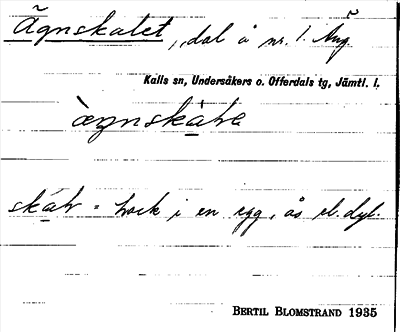 Ägnskalet, dal å nr. 1. Äng
Kalls sn, Undersåkers o. Offerdals tg, Jämtl. l.
skáƚr = hack i en egg, ås el. dyl.
BERTIL BLOMSTRAND 1935